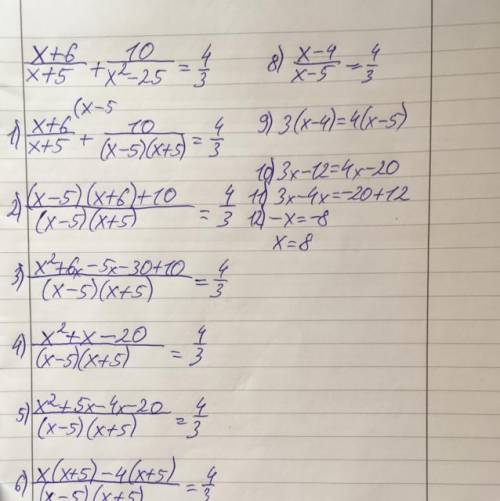 x+6/x+5 + 10/x²-25 = 4/3
1) x+6/x+5 (x-5 + 10/(x-5)(x+5) = 4/3
2) (x-5)(x+6)+10/(x-5)(x+5) = 4/3
3) x²+6x-5x-30+10/(x-5)(x+5) = 4/3
4) x²+x-20/(x-5)(x+5) = 4/3
5) x²+5x-4x-20/(x-5)(x+5) = 4/3
6) x(x+5)-4(x+5)/(x-5)(x+5) = 4/3
8) x-4/x-5 = 4/3
9) 3(x-4)=4(x-5)
10) 3x-12=4x-20
11) 3x-4x=-20+12
12) -x=-8
x=8